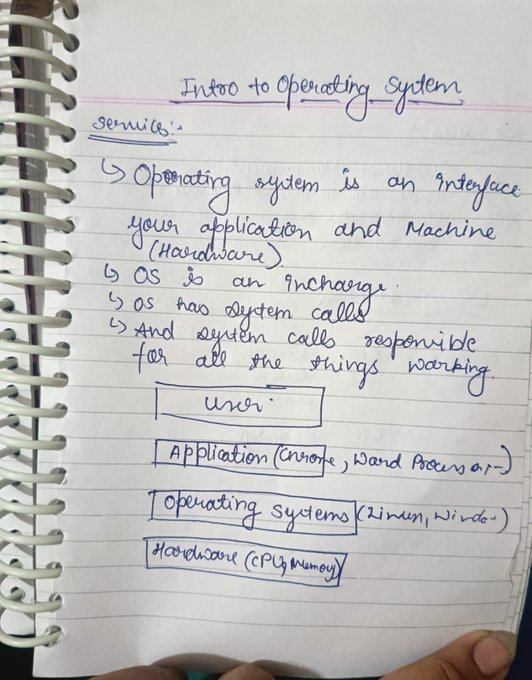 Intro to Operating System
services:-
↳ Operating system is an interface
your application and Machine
(Hardware)
↳ OS is an incharge.
↳ OS has system calls
↳ And system calls responsible
for all the things working.
User
Application (Chrome, Word Processor,--)
Operating Systems (Linux, Windo--)
Hardware (CPU, Memory)